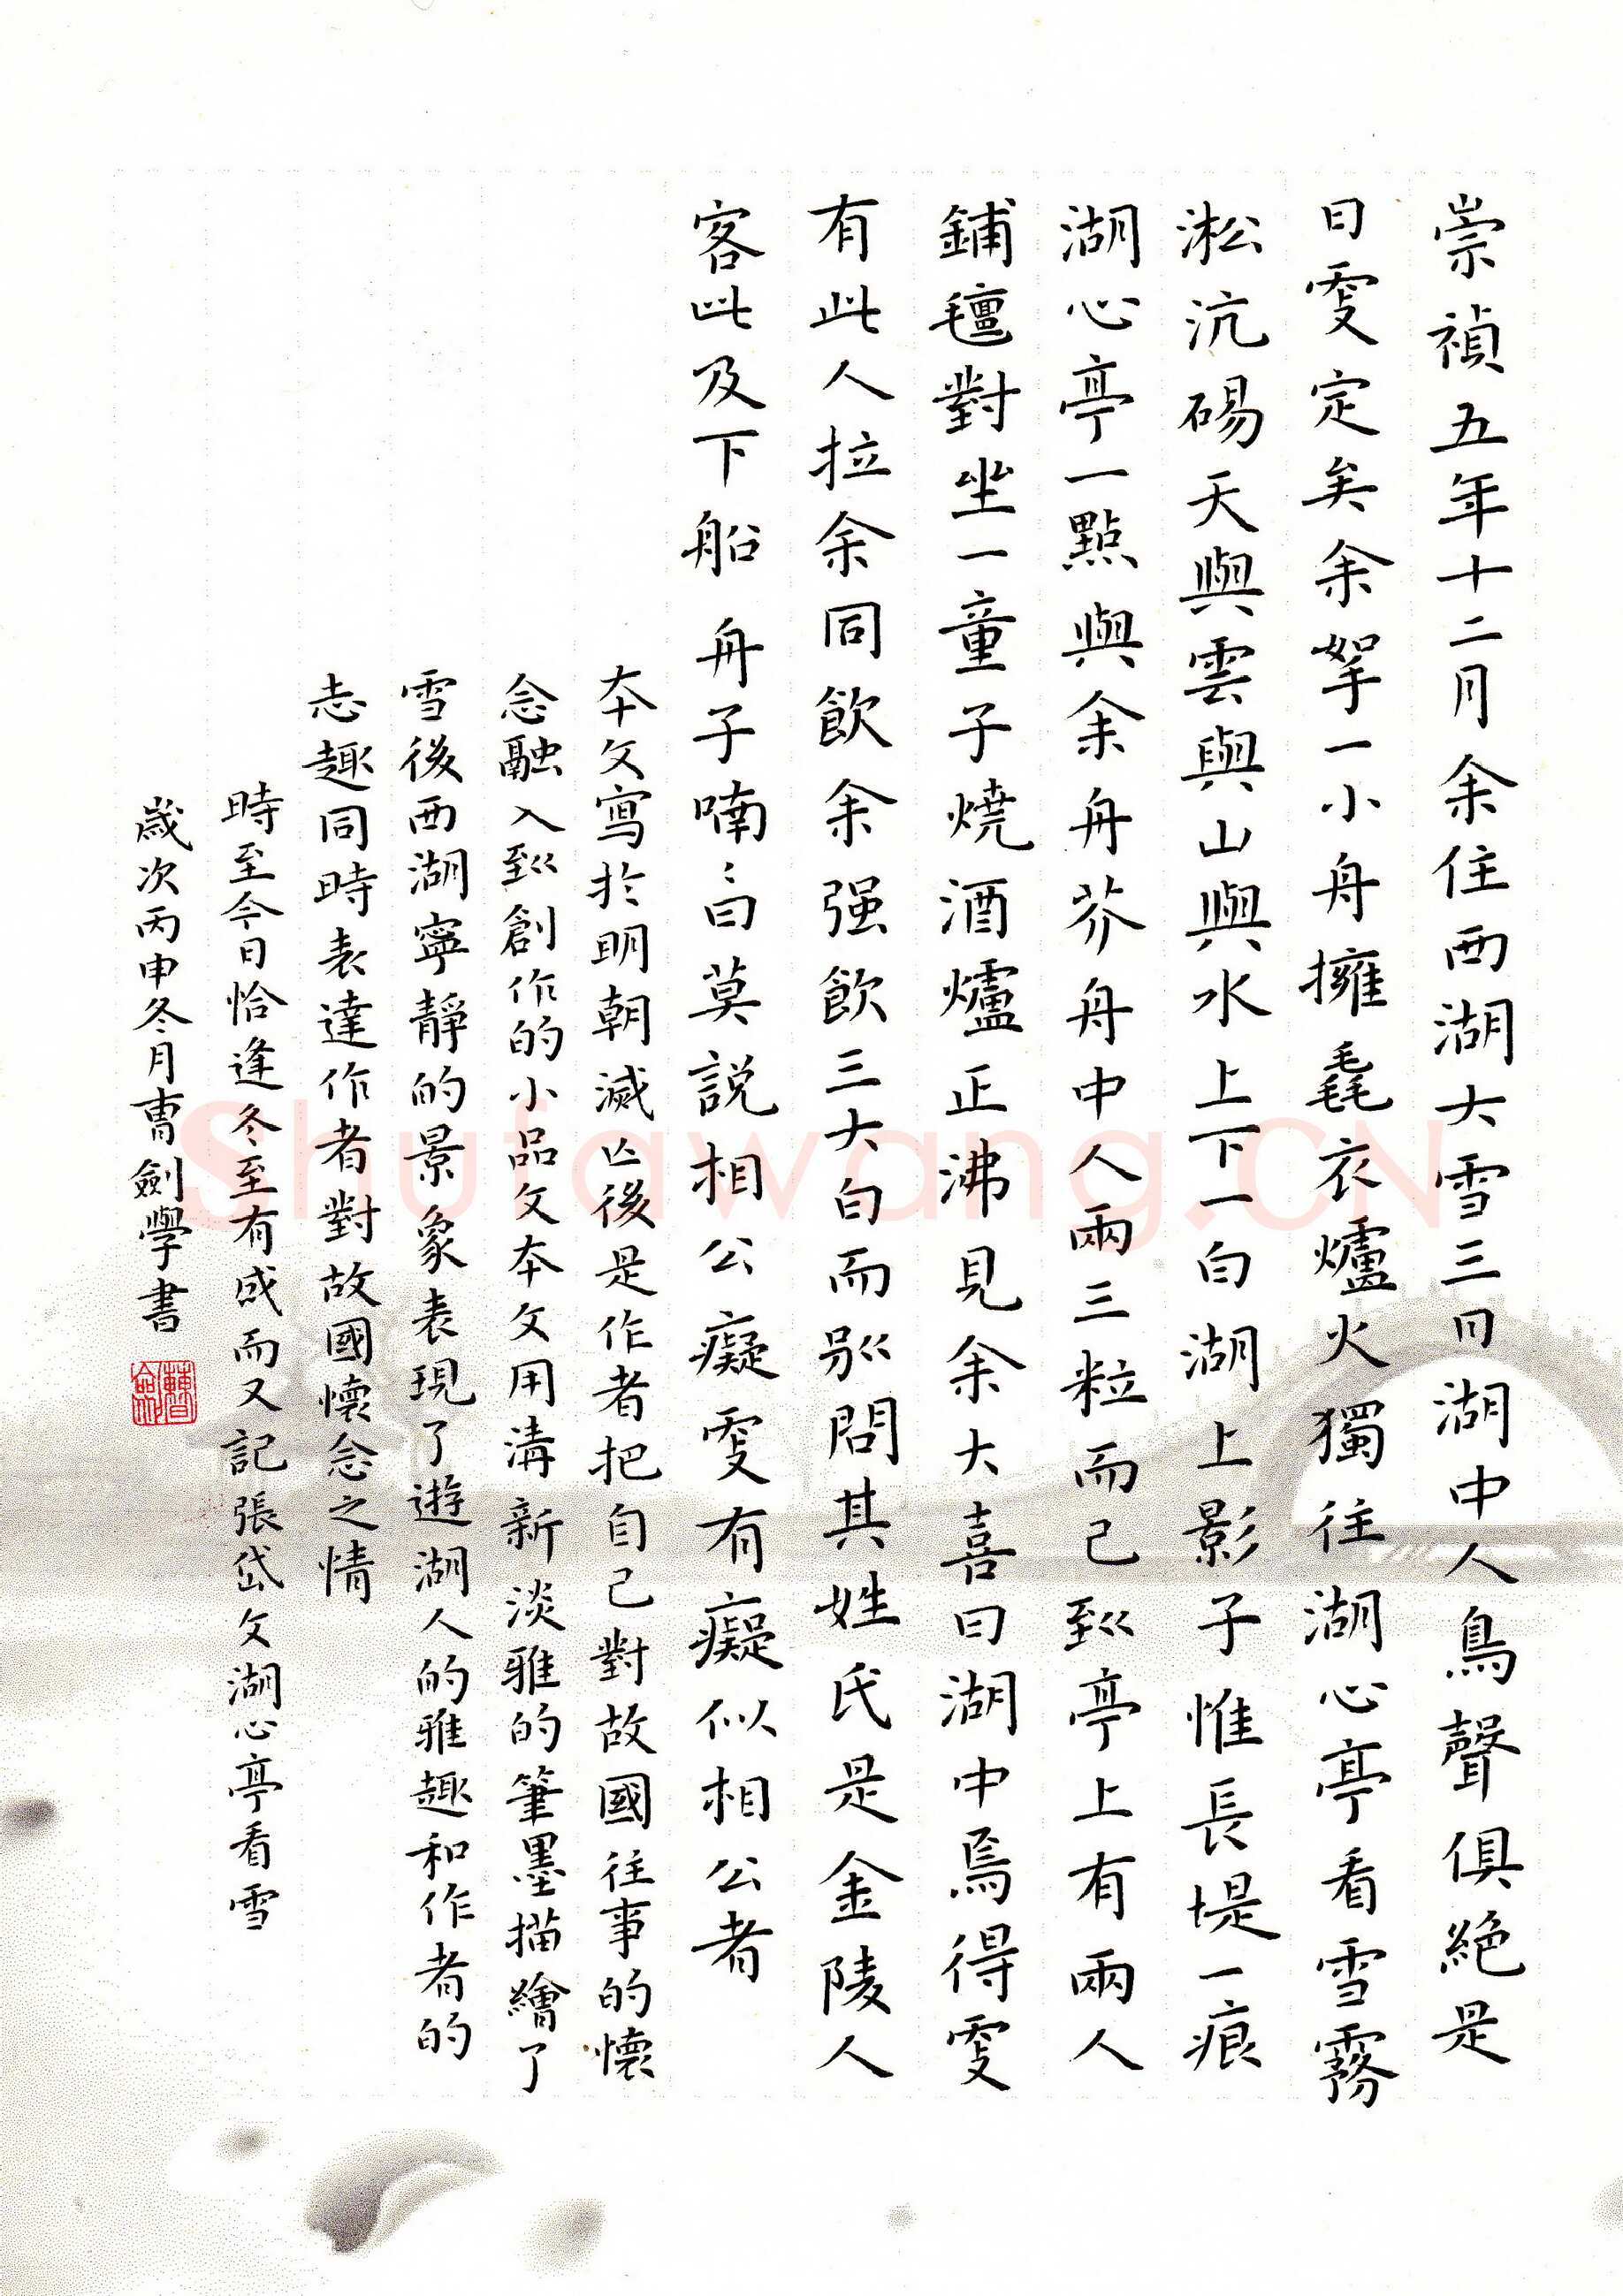 崇禎五年十二月余住西湖大雪三日湖中人鳥聲俱絕是
日霎定矣余拏一小舟擁毳衣爐火獨往湖心亭看雪霧
淞沆碭天與雲與山與水上下一白湖上影子惟長堤一痕
湖心亭一點與余舟芥舟中人兩三粒而已到亭上有兩人
鋪氊對坐一童子燒酒爐正沸見余大喜曰湖中焉得霎
有此人拉余同飲余强飲三大白而別問其姓氏是金陵人
客此及下船舟子喃〻曰莫說相公癡霎有癡似相公者
本文寫於明朝滅亡後是作者把自己對故國往事的懷
念融入到創作的小品文本文用清新淡雅的筆墨描繪了
雪後西湖寧靜的景象表現了遊湖人的雅趣和作者的
志趣同時表達作者對故國懷念之情
時至今日恰逢冬至有感而又記張岱文湖心亭看雪
歲次丙申冬月曹劍學書
Shufawang.CN